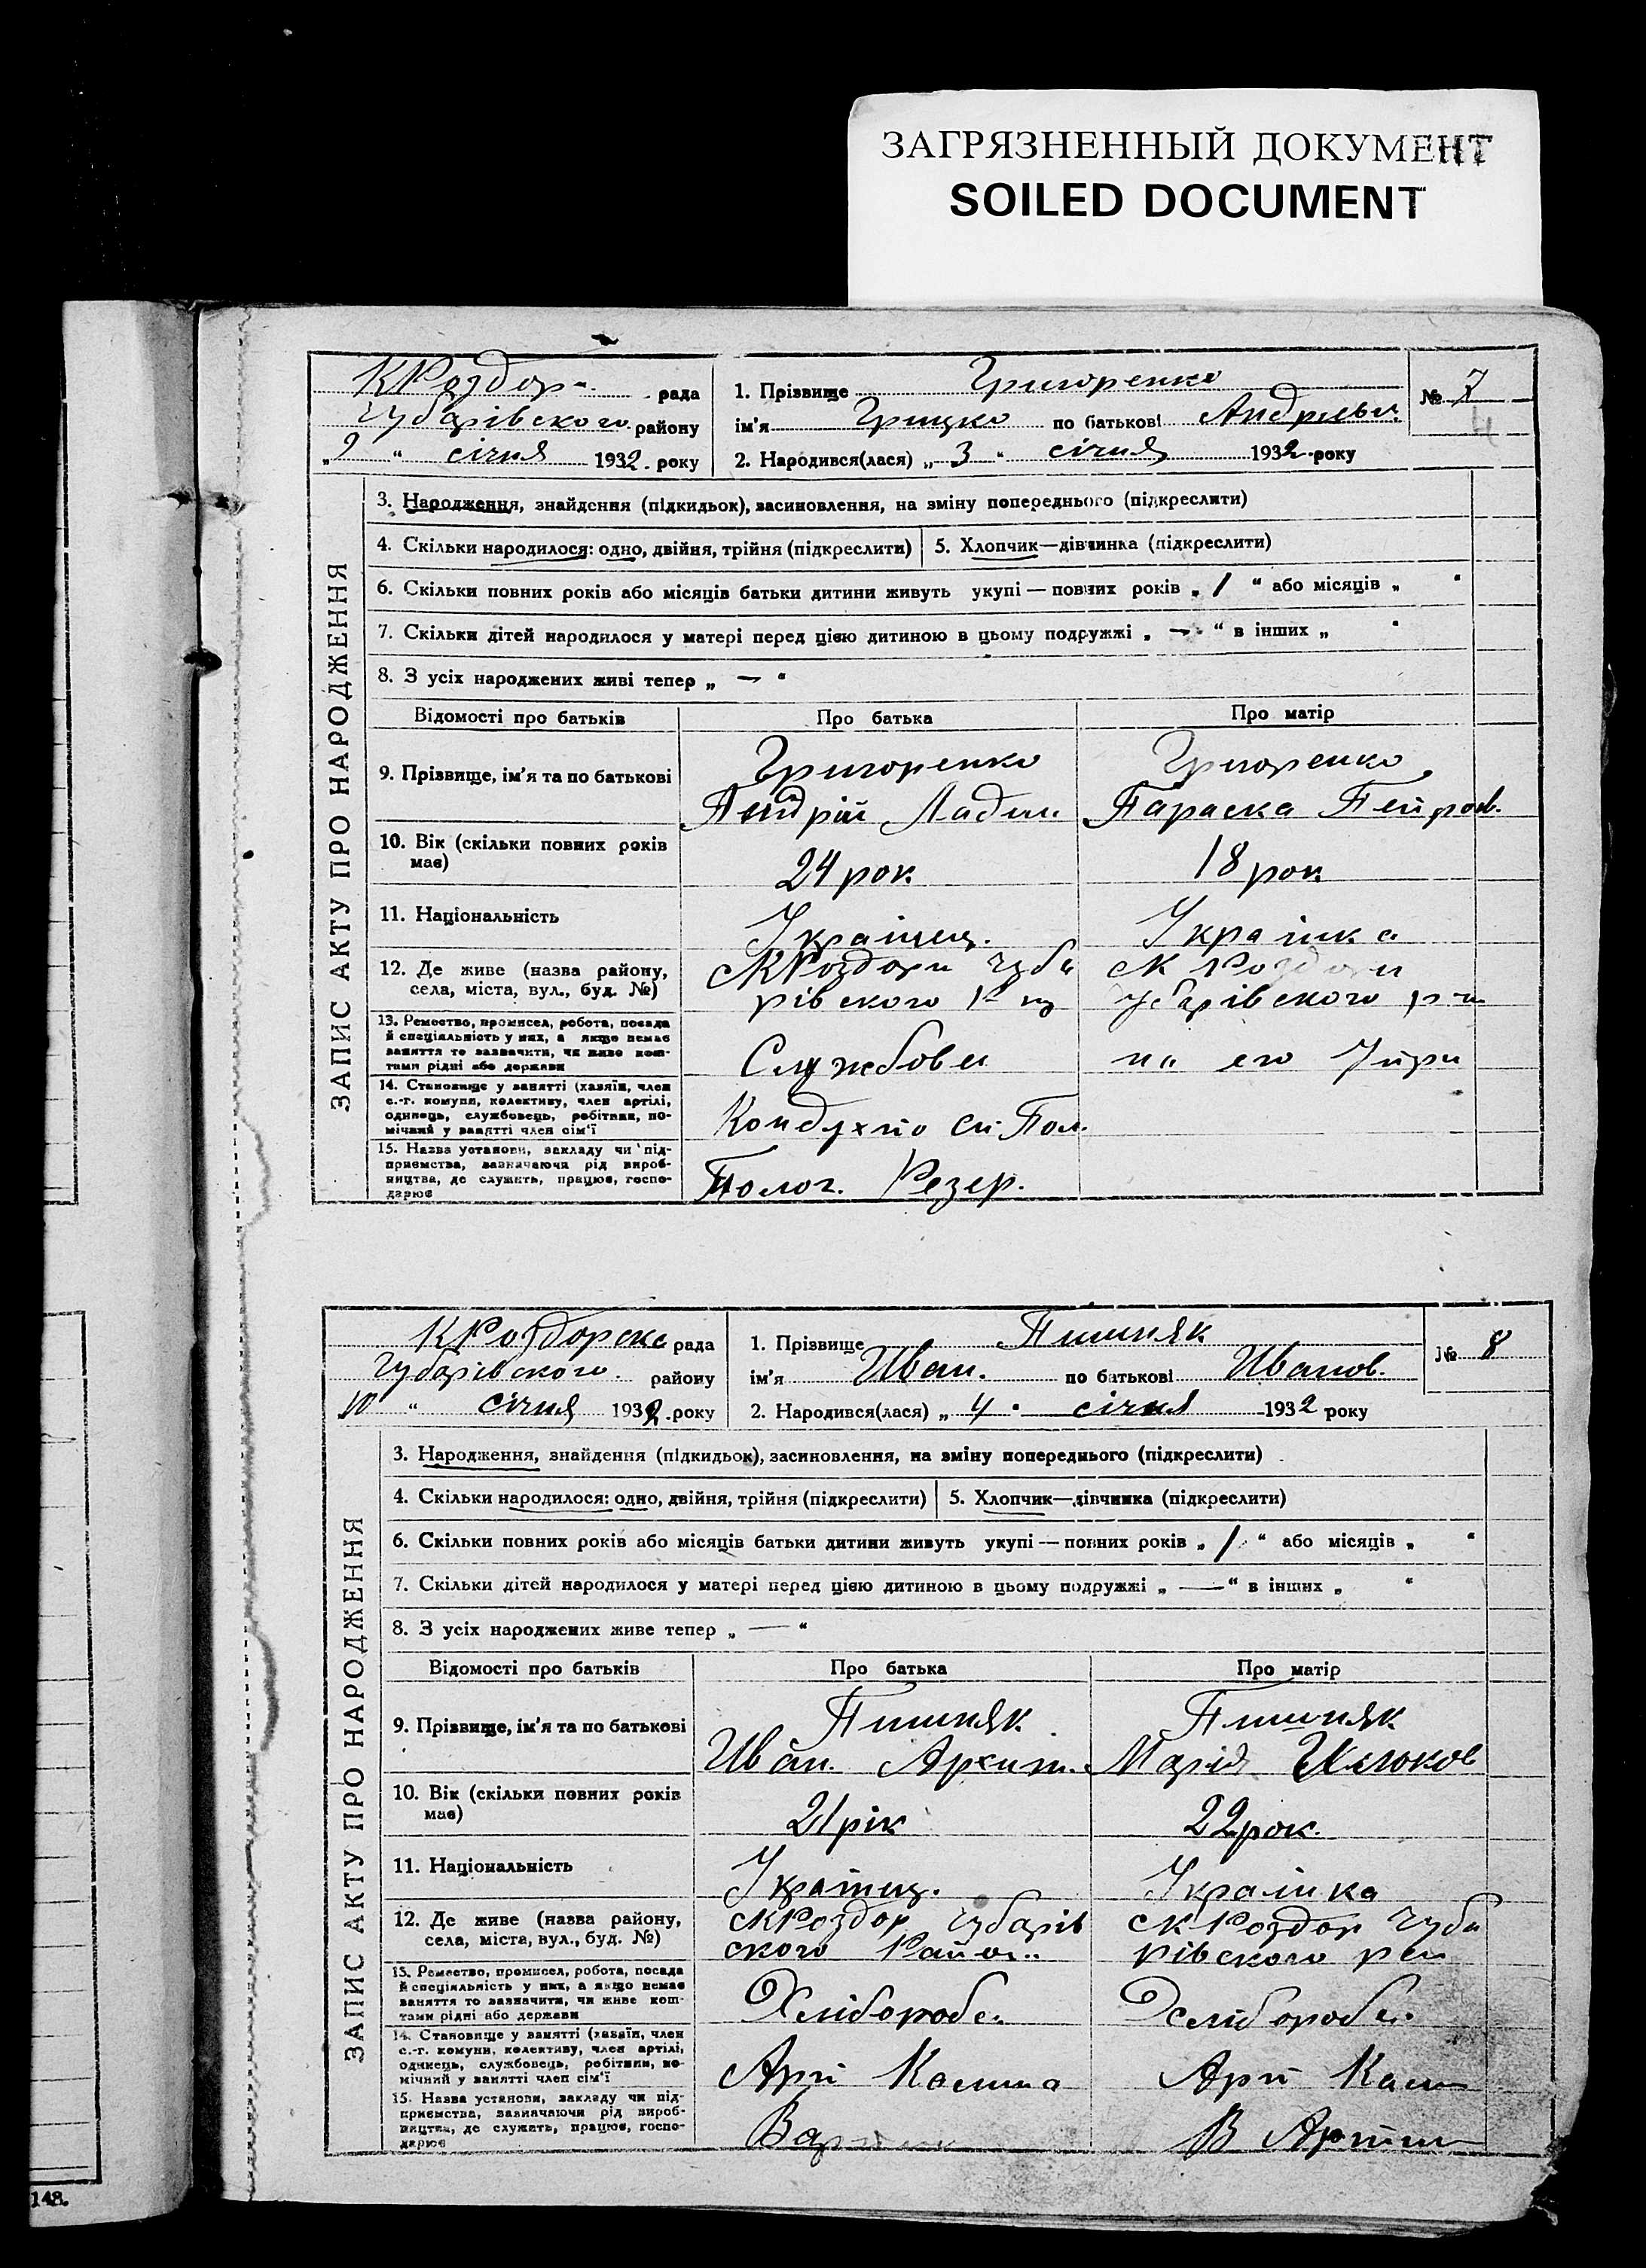 ЗАГРЯЗНЕННЫЙ ДОКУМЕНТ
SOILED DOCUMENT
КРоздор- рада
Чубарівского району
„9“ січня 1932. року
1. Прізвище Григоренко
ім'я Грицко по батькові Андрієви
2. Народився(лася) „3“ січня 1932 року
№ 7
4
ЗАПИС АКТУ ПРО НАРОДЖЕННЯ
3. Народження, знайдення (підкидьок), засиновлення, на зміну попереднього (підкреслити)
4. Скільки народилося: одно, двійня, трійня (підкреслити)
5. Хлопчик—дівчинка (підкреслити)
6. Скільки повних років або місяців батьки дитини живуть укупі — повних років „ 1 “ або місяців „ “
7. Скільки дітей народилося у матері перед цією дитиною в цьому подружжі „ — “ в інших „ “
8. З усіх народжених живі тепер „ — “
Відомості про батьків Про батька Про матір
9. Прізвище, ім'я та по батькові
Григоренко Григоренко
Андрій Параска
10. Вік (скільки повних років має)
24 рок. 18 рок
11. Національність
Українец. Українка
12. Де живе (назва району, села, міста, вул., буд. №)
сКРоздори Чуба сК Роздори
рівского чубарівского
13. Ремество, промисел, робота, посада
й спеціяльність у них, а якщо немає
заняття то зазначити, чи живе кош-
тами рідні або держави
Службови на его
14. Становище у занятті (хазяїн, член
с.-г. комуни, колективу, член артілі,
одинець, службовець, робітник, по-
мічний у занятті член сім'ї
Кондукто
15. Назва установи, закладу чи під-
приємства, зазначаючи рід вироб-
ництва, де служить, працює, госпо-
дарює
Полог. Резер.
КРоздорска рада
Чубарівского. району
10 “ січня 1932. року
1. Прізвище Пишняк
ім'я Иван. по батькові Иванов.
2. Народився(лася) „4“ січня 1932 року
№ 8
ЗАПИС АКТУ ПРО НАРОДЖЕННЯ
3. Народження, знайдення (підкидьок), засиновлення, на зміну попереднього (підкреслити)
4. Скільки народилося: одно, двійня, трійня (підкреслити)
5. Хлопчик—дівчинка (підкреслити)
6. Скільки повних років або місяців батьки дитини живуть укупі — повних років „ 1 “ або місяців „ “
7. Скільки дітей народилося у матері перед цією дитиною в цьому подружжі „ — “ в інших „ “
8. З усіх народжених живе тепер „ — “
Відомості про батьків Про батька Про матір
9. Прізвище, ім'я та по батькові
Пишняк Пишняк
Иван. Архип. Марія
10. Вік (скільки повних років має)
21 рік 22 рок.
11. Національність
Українец. Українка
12. Де живе (назва району, села, міста, вул., буд. №)
сКРоздор Чубарів сК Роздор Чуба
ского Район.. рівского
13. Ремество, промисел, робота, посада
й спеціяльність у них, а якщо немає
заняття то зазначити, чи живе кош-
тами рідні або держави
Хлібороба Хлібороба
14. Становище у занятті (хазяїн, член
с.-г. комуни, колективу, член артілі,
одинець, службовець, робітник, по-
мічний у занятті член сім'ї
Арт Арт
15. Назва установи, закладу чи під-
приємства, зазначаючи рід вироб-
ництва, де служить, працює, госпо-
дарює
В Артти
148.